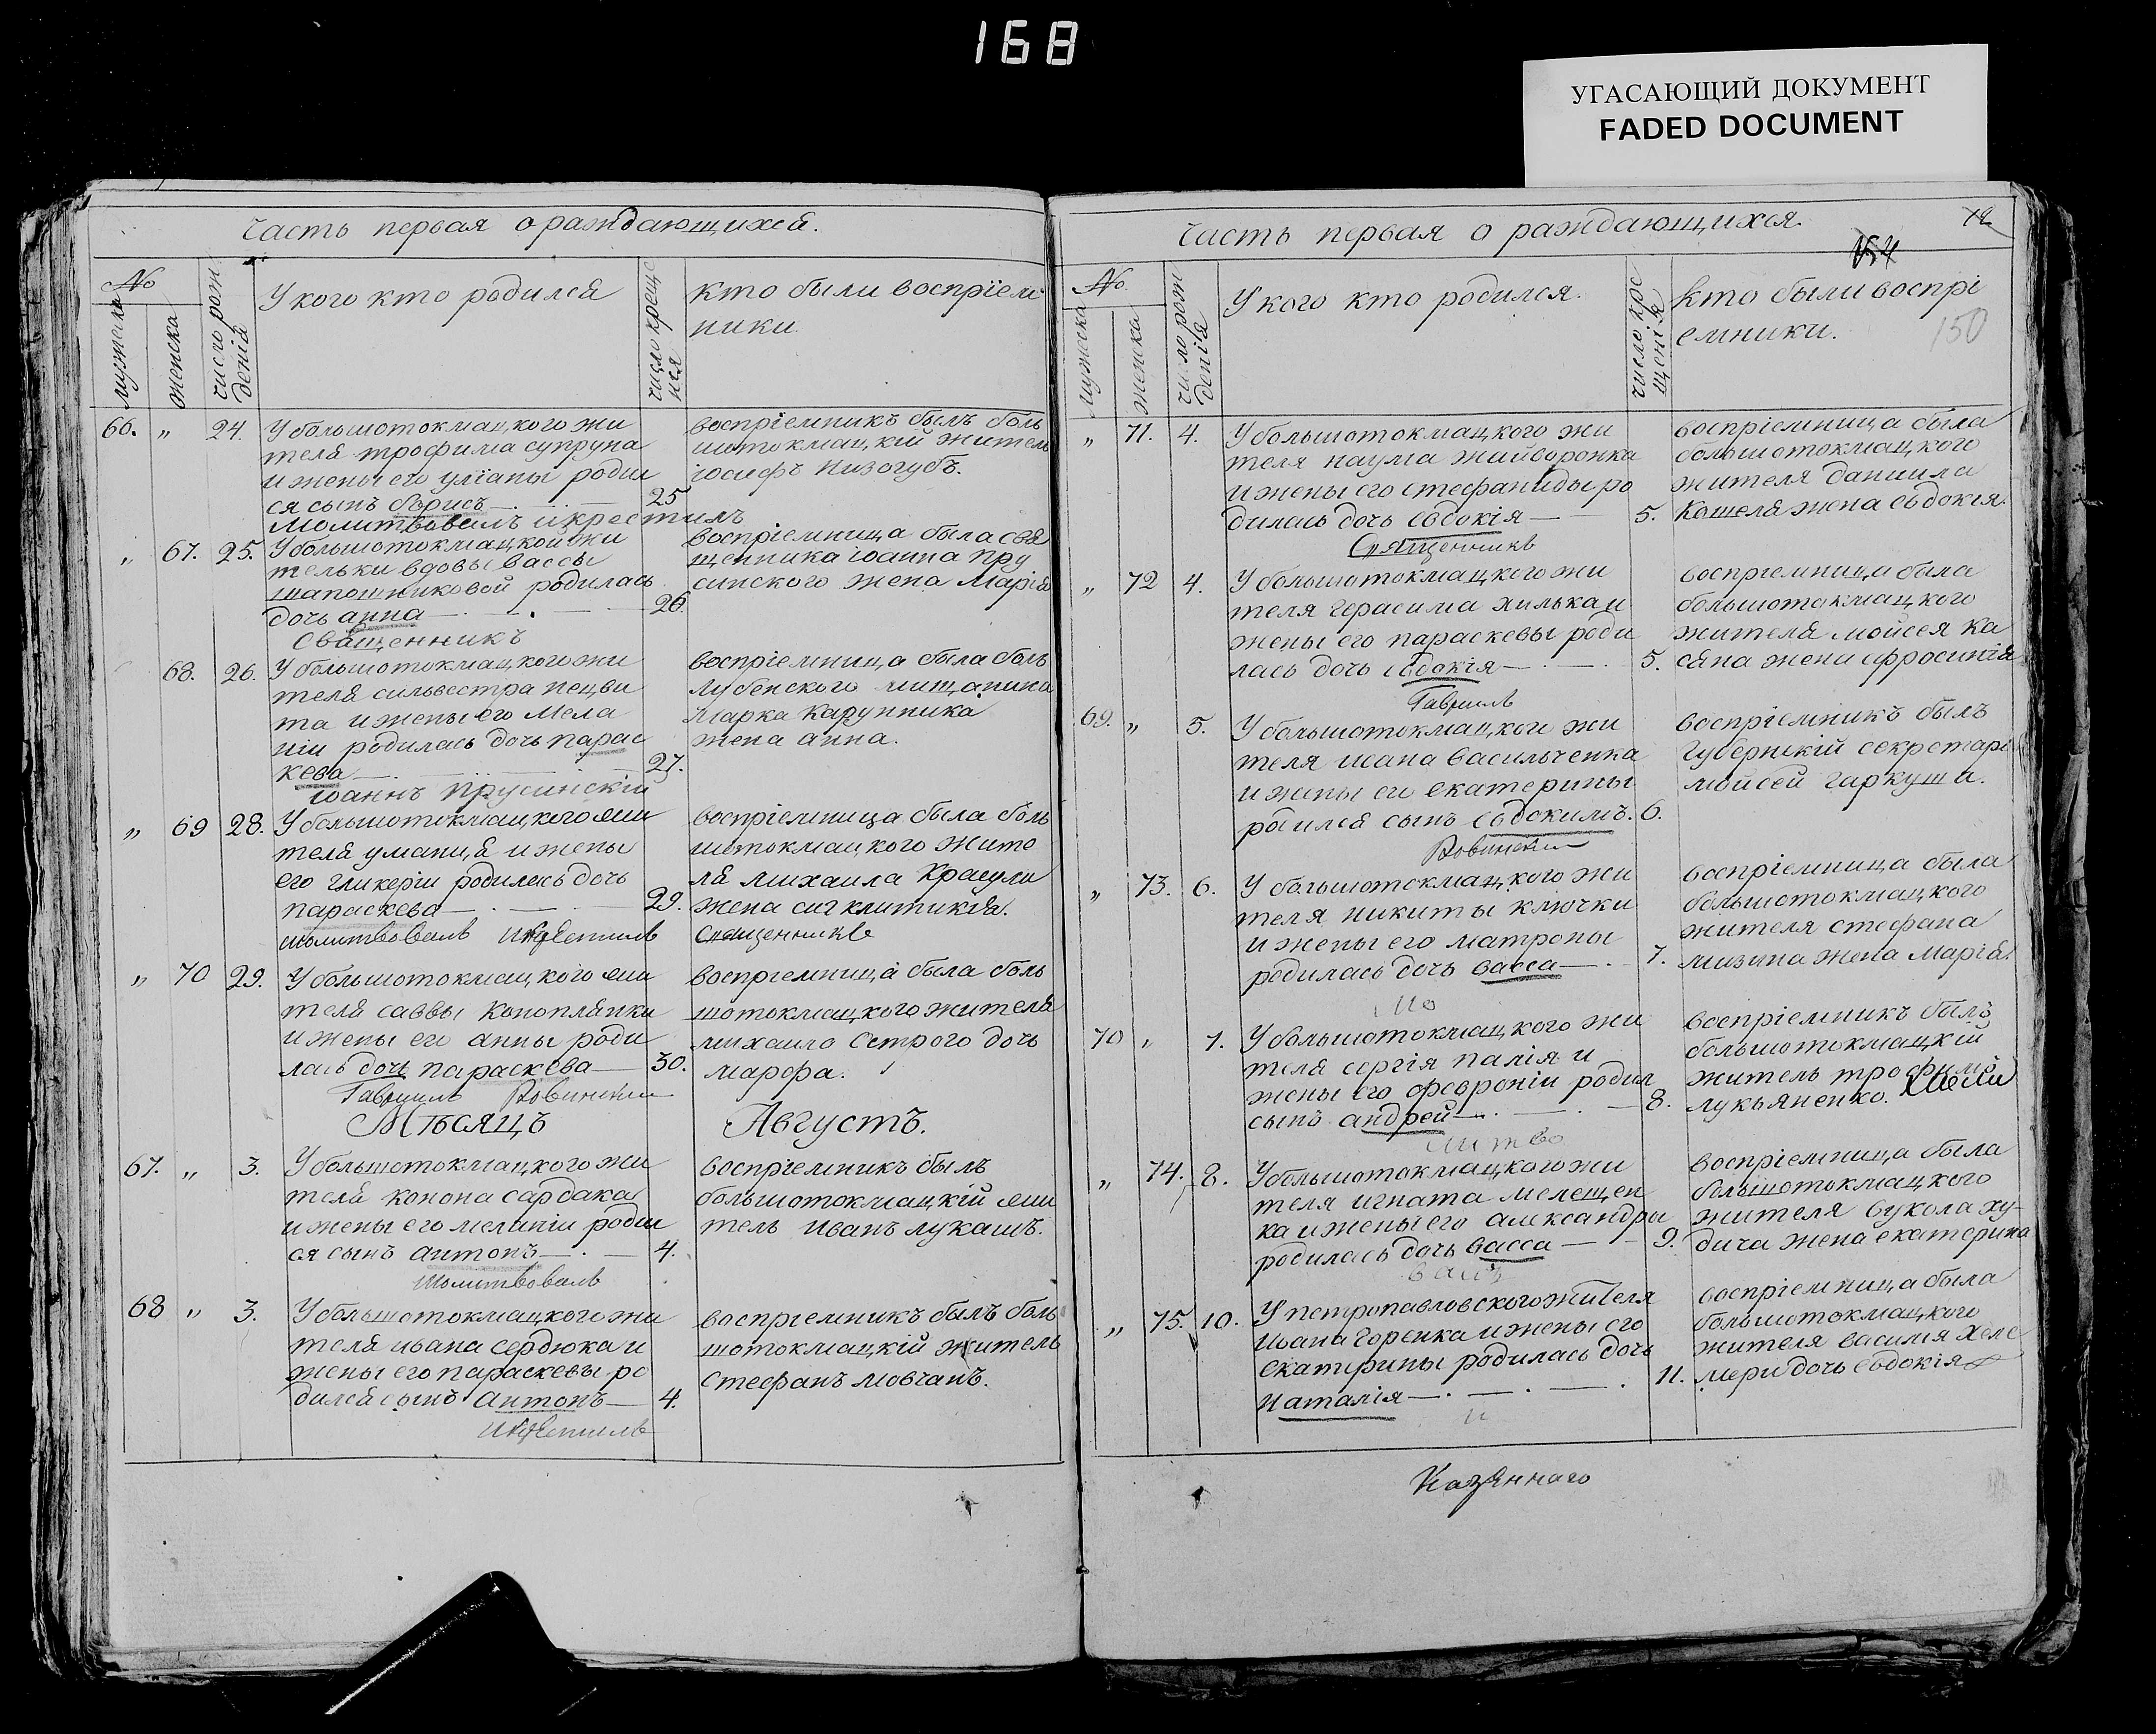 168
УГАСАЮЩИЙ ДОКУМЕНТ
FADED DOCUMENT
Часть первая о раждающихся.
№
мужеска
женска
число рож
денія
У кого кто родился
число креще
нія
кто были воспріем
ники.
66. „ 24. У большотокмацкого жи
теля трофима супруна
и жены его уліаны родил
ся сынъ борисъ — 25
воспріемникъ былъ боль
шотокмацкій житель
іосифъ низогубъ.
Молитвовалъ и крестилъ
„ 67. 25. У большотокмацкой жи
тельки вдовы вассы
шапошниковой родилась
дочь анна — 26.
воспріемница была свя
щенника іоанна пру
синского жена Марія
Священникъ
68. 26. У большотокмацкого жи
теля сильвестра пецви
та и жены его Мела
ніи родилась дочь парас
кева — 27.
воспріемница была
лубенского мищанина
Марка Карунника
жена анна.
Іоаннъ Прусинскій
„ 69 28. У большотокмацкого жи
теля уманца и жены
его гликеріи родилась дочь
параскева — 29.
воспріемница была боль
шотокмацкого жите
ля михаила Красули
жена сигклитикія.
молитвовалъ и крестилъ священникъ
„ 70 29. У большотокмацкого жи
теля саввы коноплянки
и жены его анны роди
лась дочь параскева — 30.
воспріемница была боль
шотокмацкого жителя
михаила Острого дочь
марфа.
Гавриилъ Ровинскій
Мѣсяцъ Августъ.
67. „ 3. У большотокмацкого жи
теля конона сардака
и жены его меланіи родил
ся сынъ антонъ — 4.
воспріемникъ былъ
большотокмацкій жи
тель иванъ лукашъ.
молитвовалъ
68 „ 3. У большотокмацкого жи
теля ивана сердюка и
жены его параскевы ро
дился сынъ антонъ — 4.
воспріемникъ былъ боль
шотокмацкій житель
стефанъ мовчанъ.
и крестилъ
Часть первая о раждающихся.
12
150
№
мужеска
женска
число рож
денія
У кого кто родился.
число кре
щенія
кто были воспрі
емники.
„ 71. 4. У большотокмацкого жи
теля наума жайворонка
и жены его стефаниды ро
дилась дочь евдокія — 5.
воспріемница была
большотокмацкого
жителя даниила
Кошеля жена евдокія.
Священникъ
„ 72 4. У большотокмацкого жи
теля герасима хилька и
жены его параскевы роди
лась дочь евдокія — 5.
воспріемница была
большотокмацкого
жителя мойсея ка
сяна жена ефросинія
Гавриилъ
69. „ 5. У большотокмацкого жи
теля исана васильченка
и жены его екатерины
родился сынъ евдокимъ. 6.
воспріемникъ былъ
губернскій секретарь
мойсей гаркуша.
Ровинскій
„ 73. 6. У большотокмацкого жи
теля никиты ключки
и жены его матроны
родилась дочь васса — 7.
воспріемница была
большотокмацкого
жителя стефана
мизина жена марія.
мо
70 „ 7. У большотокмацкого жи
теля сергія палія и
жены его февроніи родил
сынъ андрей — 8.
воспріемникъ былъ
большотокмацкій
житель трофимъ
лукьяненко.
литво
„ 74. 8. У большотокмацкого жи
теля игната мелещен
ка и жены его александры
родилась дочь васса — 9.
воспріемница была
большотокмацкого
жителя вукола ху
дича жена екатерина
валъ
„ 75. 10. У петропавловского жителя
ивана горенка и жены его
екатерины родилась дочь
наталія — 11.
воспріемница была
большотокмацкого
жителя василія хеле
мери дочь евдокія
и
Казеннаго